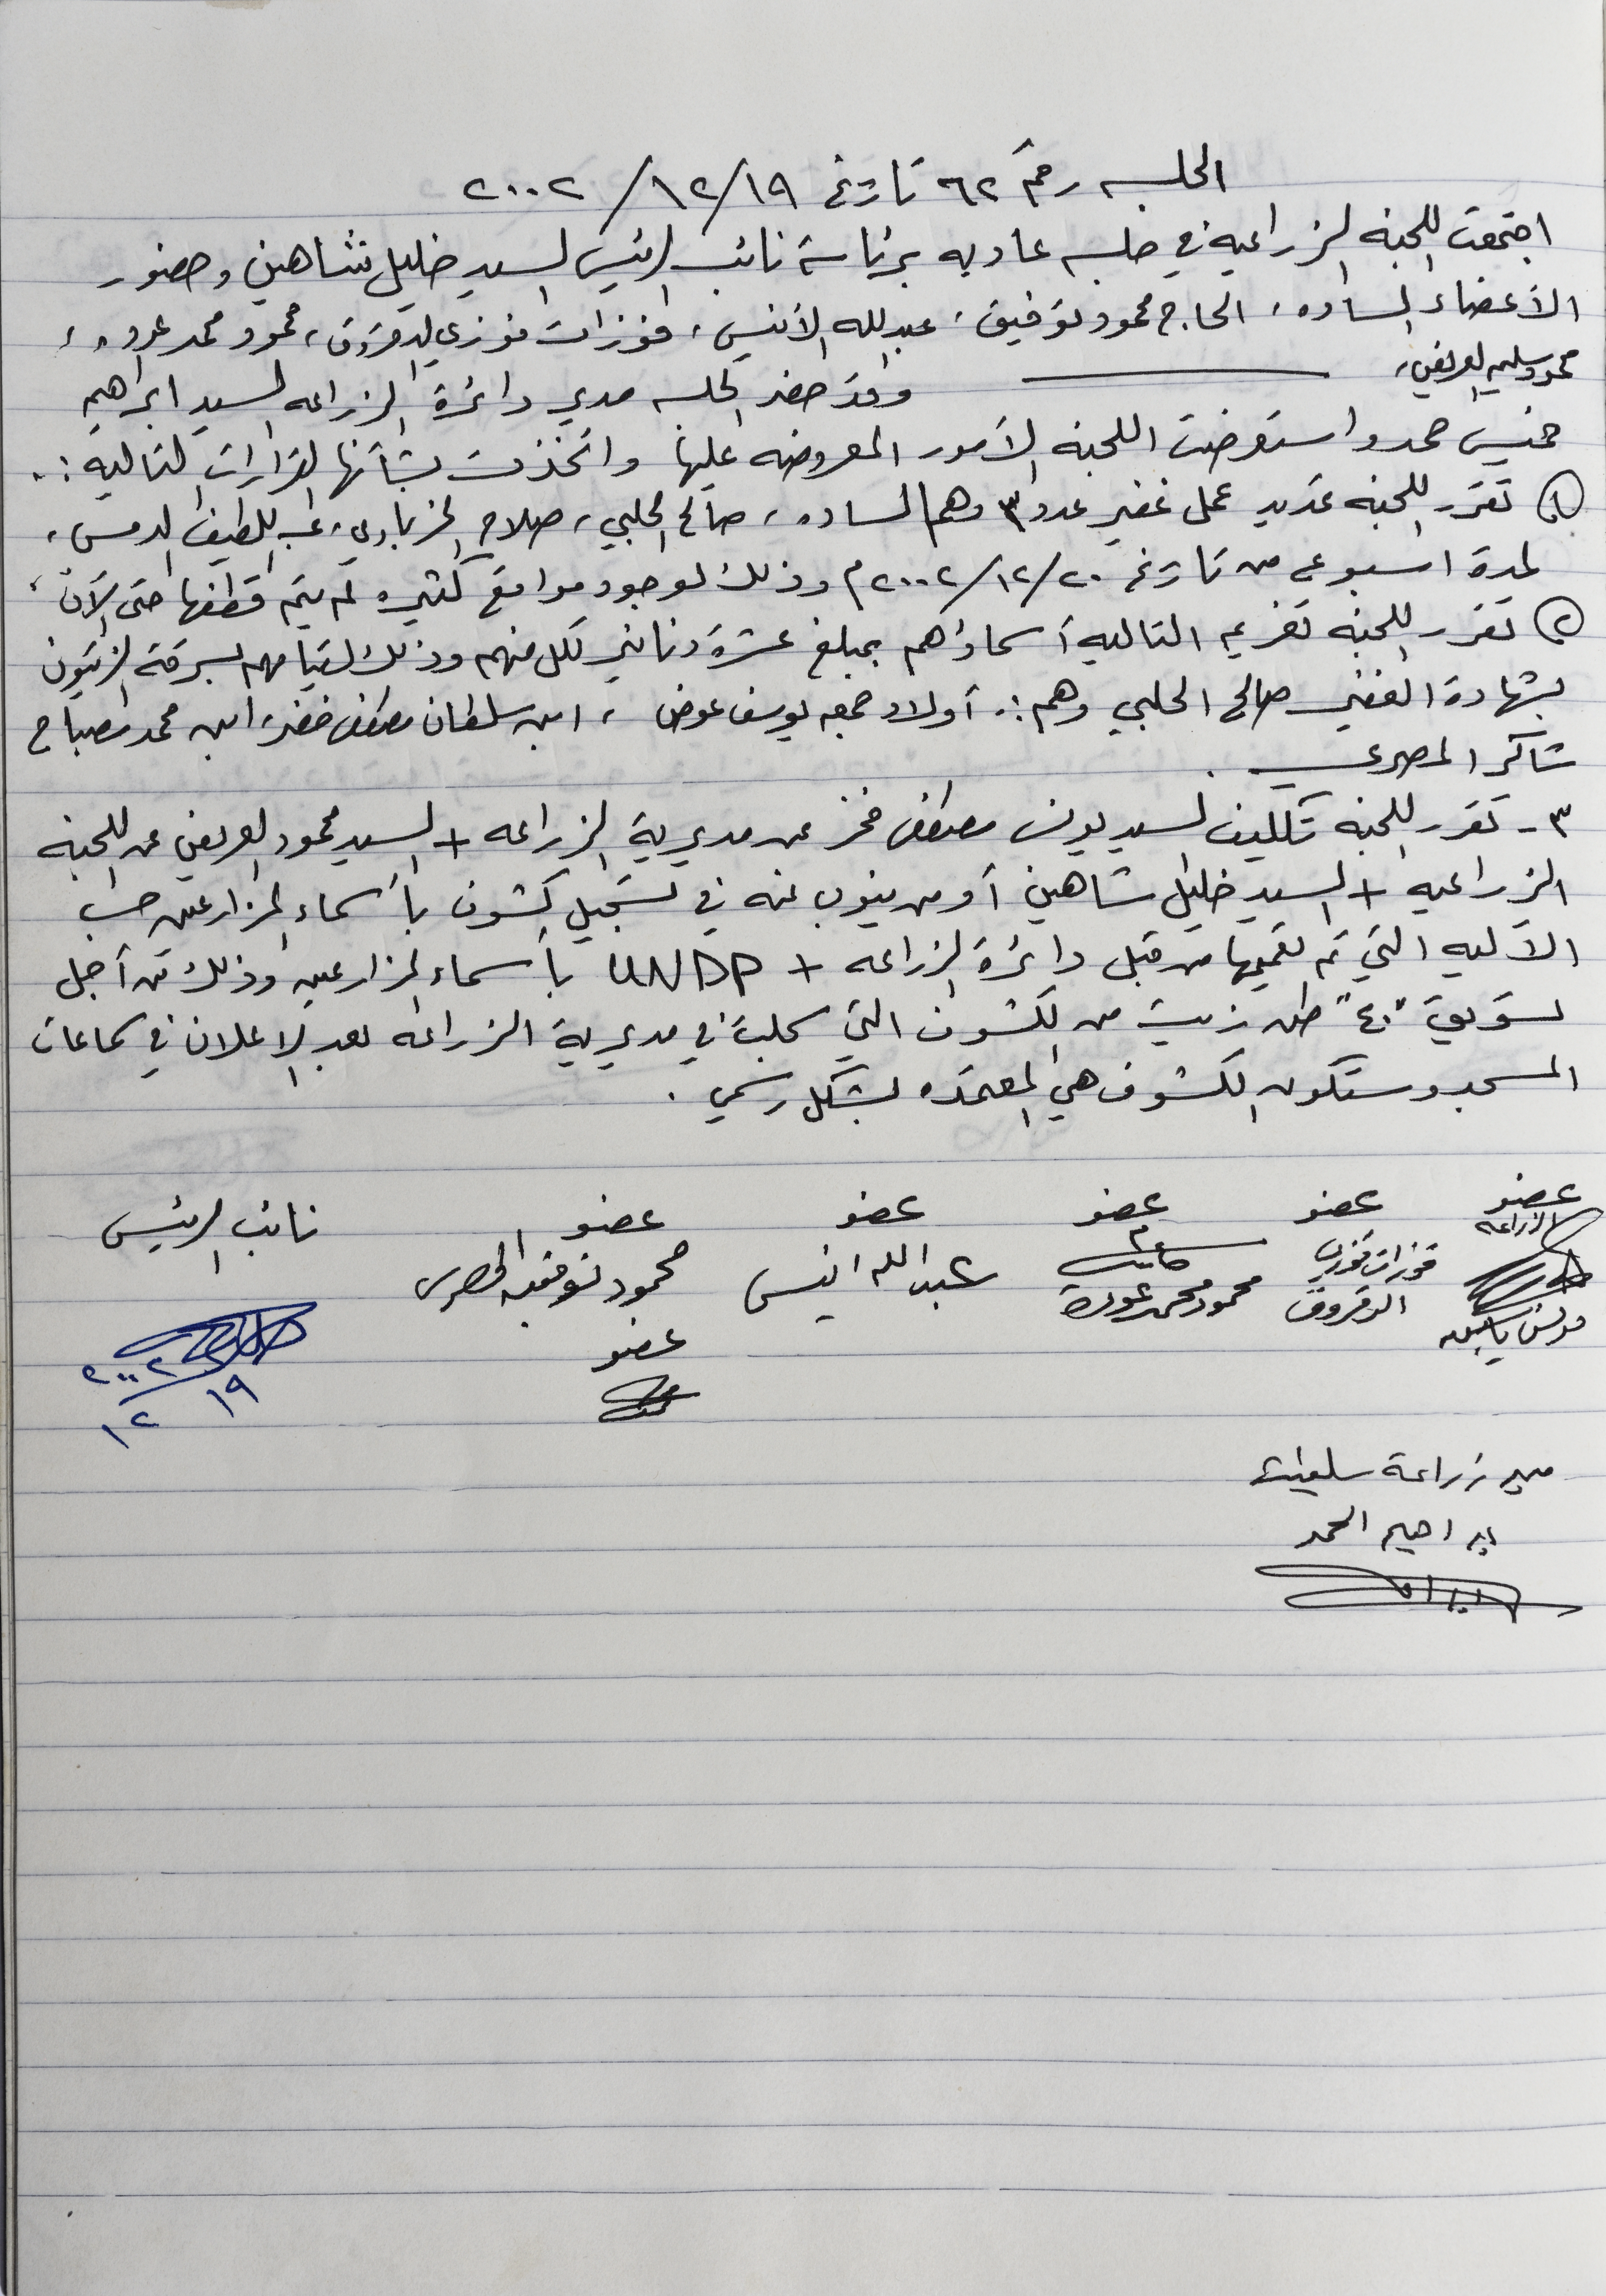 الجلسه رقم ٦٢ تاريخ ١٩/١٢/٢٠٠٢
اجتمعت اللجنه الزراعيه في جلسه عاديه برئاسة نائب الرئيس السيد خليل شاهين وحضور
الأعضاء الساده، الحاج محمود توفيق، عبدالله الأنيس، فوزات فوزي الدقروق، محمود محمد عوده،
محمود سليم العريض،
وقد حضر الجلسه مدير دائرة الزراعه السيد ابراهيم
خميس حمد واستعرضت اللجنة الأمور المعروضه عليها واتخذت بشأنها القرارات التاليه:.
(١) تقرر اللجنه تمديد عمل غفير عدد ٣ وهم الساده، صالح الحلبي، صلاح الخزباوي، عبداللطيف الدمس،
لمدة اسبوعين من تاريخ ٢٠/١٢/٢٠٠٢م وذلك لوجود مواقع كثيره لم يتم قطفها حتى الآن،
(٢) تقرر اللجنه تغريم التاليه أسماؤهم بمبلغ عشرة دنانير لكل منهم وذلك لقيامهم بسرقة الزيتون
بشهادة الغفير صالح الحلبي وهم:. أولاد جمعه يوسف عوض، ابن سلطان مصطفى خضر، ابن محمد مصباح
شاكر المصري.
٣- تقرر اللجنه تكليف السيد يونس مصطفى من مديرية الزراعه + السيد محمود العريض عن اللجنه
الزراعيه + السيد خليل شاهين أو من ينوب عنه في تسجيل كشوف بأسماء المزارعين حسب
الآليه التي تم تعميمها من قبل دائرة الزراعه + UNDP بأسماء المزارعين وذلك من أجل
تسويق "٤٠" طن زيت من الكشوف التي سجلت في مديرية الزراعه بعد الإعلان في سماعات
المسجد وستكون الكشوف هي المعتمده بشكل رسمي.
عضو عضو عضو عضو عضو نائب الرئيس
الزراعه فوزات فوزي الدقروق محمود محمد عودة عبدالله انيس محمود توفيق
عضو
٢٠٠٢
١٩
١٢
مدير زراعة سلفيت
ابراهيم الحمد